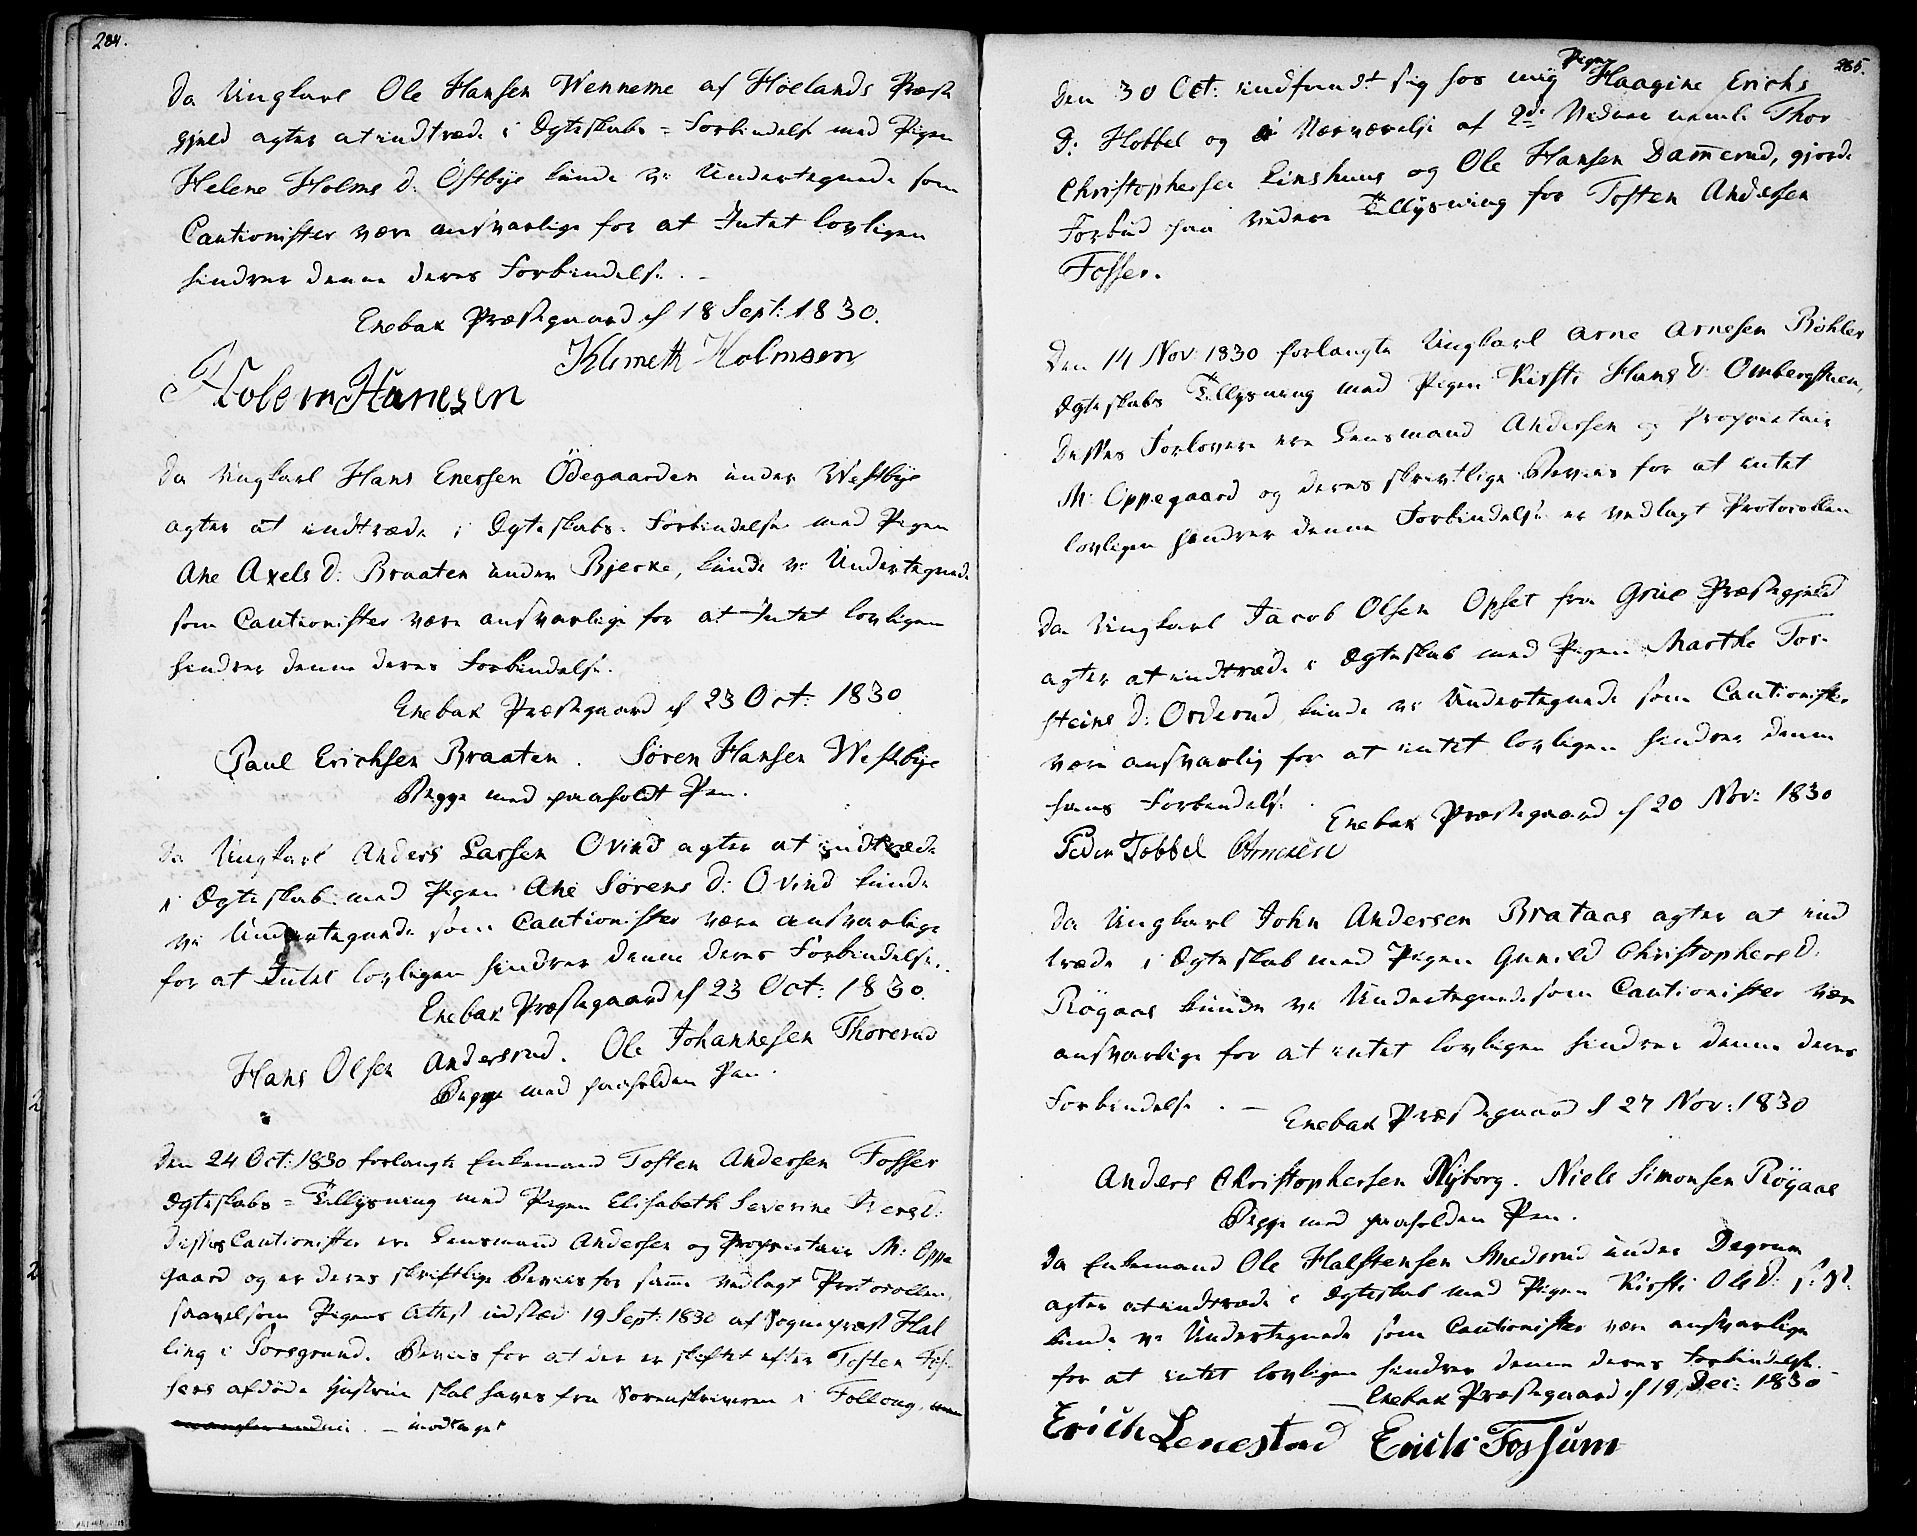 284.
Da Ungkarl Ole Hansen Wenneme af Hølands Præste
gjeld agter at indtræde i Ægteskabs = Forbindelse med Pigen
Helene Holms D: Østbye kunde vi Undertegnede som
Cautionister være ansvarlige for at Intet lovligen
hindrer denne deres Forbindelse. –
Enebak Præstegaard d 18 Sept: 1830.
Klimeth Holmsen
Holem Hansen
Da Ungkarl Hans Enersen Ödegaarden under Westbye
agter at indtræde i Ægteskabs-Forbindelse med Pigen
Ane Axels D: Braaten under Bjerke, kunde vi Undertegnede
som Cautionister være ansvarlige for at Intet lovligen
hindrer denne deres Forbindelse.
Enebak Præstegaard d 23 Oct: 1830
Paul Erichsen Braaten. Søren Hansen Westbye
Begge med paaholdt Pen.
Da Ungkarl Anders Larsen Ovind agter at indtræde
i Ægteskab med Pigen Ane Sørens D: Ovind kunde
vi Undertegnede som Cautionister være ansvarlige
for at Intet lovligen hindrer denne deres Forbindelse.
Enebak Præstegaard d 23 Oct: 1830.
Hans Olsen Andersrud. Ole Johannesen Thorerud
Begge med paaholden Pen.
Den 24 Oct: 1830 forlangte Enkemand Tosten Andersen Fosser
Ægteskabs = Tillysning med Pigen Elisabeth Severine Iversd:
Disses Cautionister ere Lensmand Andersen og Proprietair M: Oppe
gaard og er deres skriftlige Beviis for samme vedlagt Protocollen,
saavelsom Pigens Attest udsted 19 Sept: 1830 af Sognepræst Hal
ling i Porsgrund. Beviis for at der er skiftet efter Tosten Fos-
sers afdøde Hustrue skal haves fra Sorenskriveren i Follong,
– modtaget
285.
Den 30 Oct: indfandt sig hos mig Pigen Haagine Erichs
D: Hobbel og i Nærværelse af 2de Vidner nemlig Thor
Christophersen Linshuus og Ole Hansen Dammerud, gjorde
Forbud paa videre Tillysning for Tosten Andersen
Fosser.
Den 14 Nov: 1830 forlangte Ungkarl Arne Arnesen Böhler
Ægteskabs Tillysning med Pigen Kirsti Hans D: Ombergstuen,
Disses Forlovere ere Lensmand Andersen og Proprietair
M: Oppegaard og deres skrivtlige Beviis for at intet
lovligen hindrer denne Forbindelse er vedlagt Protocollen
Da Ungkarl Jacob Olsen Opset fra Grue Præstegjeld
agter at indtræde i Ægteskab med Pigen Marthe Tor-
steins D: Orderud, kunde vi Undertegnede som Cautionister
være ansvarlig for at intet lovligen hindrer denne
hans Forbindelse.
Enebak Præstegaard d 20 Nov: 1830
Peder Tobbel Arnesen
Da Ungkarl John Andersen Brataas agter at ind
træde i Ægteskab med Pigen Gunild Christophers D:
Röyaas kunde vi Undertegnede som Cautionister være
ansvarlige for at intet lovligen hindrer denne deres
Forbindelse. –
Enebak Præstegaard d 27 Nov: 1830
Anders Christophersen Nyborg. Niels Simonsen Röyaas
Begge med paaholden Pen.
Da Enkemand Ole Halstensen Smedsrud under Degrum
agter at indtræde i Ægteskab med Pigen Kirsti Ols D:
kunde vi Undertegnede som Cautionister være ansvarlige
for at intet lovligen hindrer denne deres Forbindelse. –
Enebak Præstegaard d 19 Dec: 1830
Erich Lenestad Erich Fossum